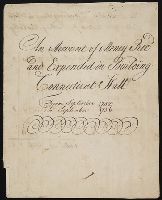 An Account of Money Rec'd
and Expended in Building
Connecticut Hall
September 1750
September 1756